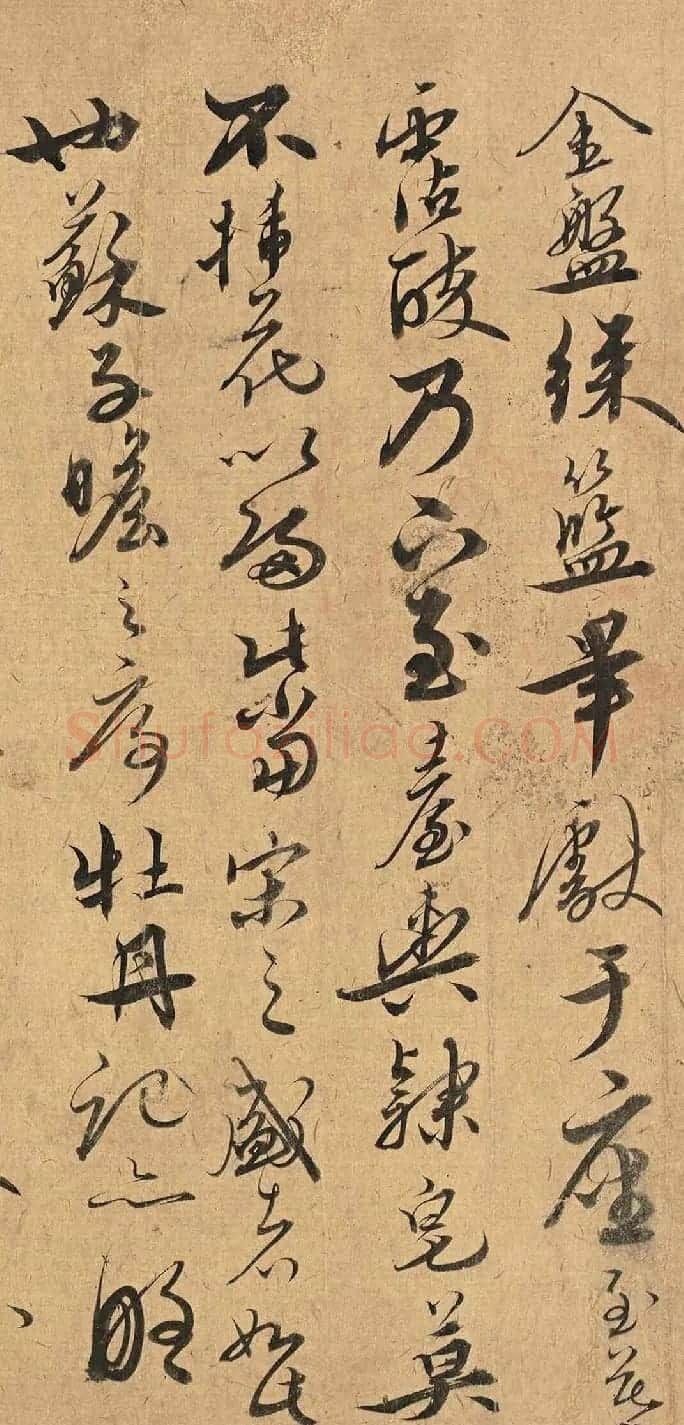 金盤綵籃畢獻于座至花
沾乃下至臺輿隸皂莫
不插花以此當宋之盛者如此
也蘇子瞻之序牡丹記亦
Shufaziliao.COM